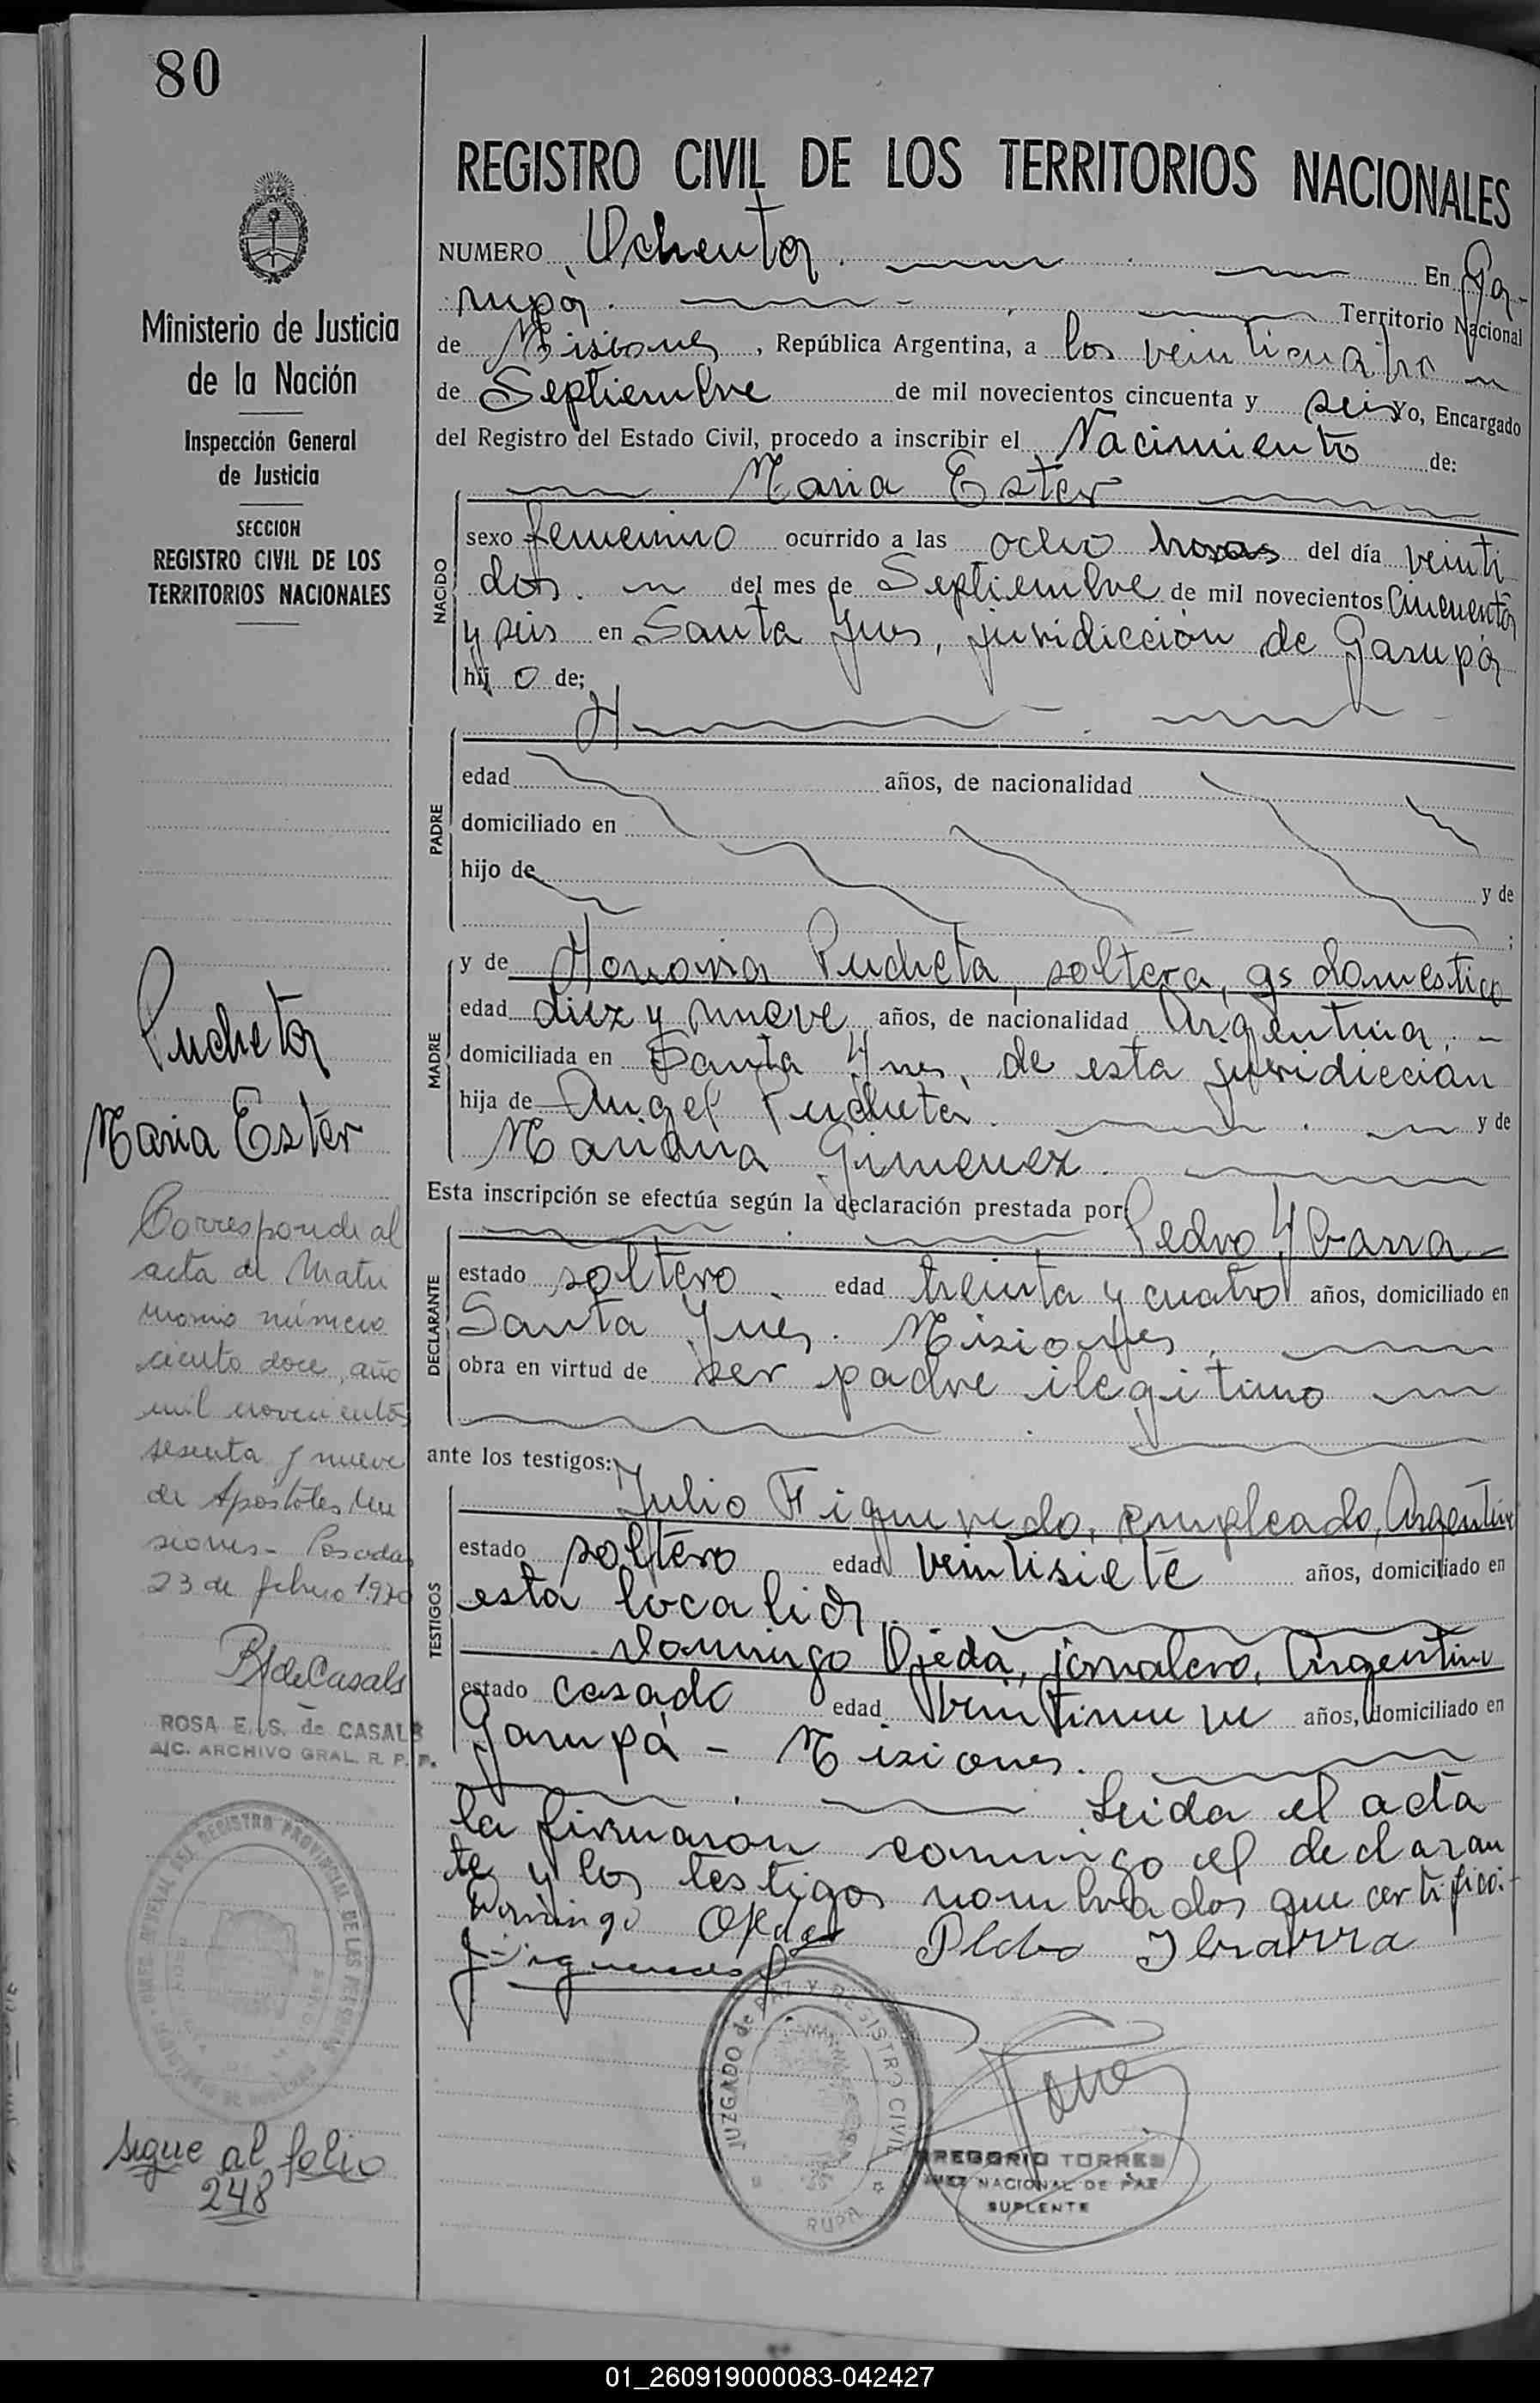 80
Ministerio de Justicia
de la Nación
Inspección General
de Justicia
SECCION
REGISTRO CIVIL DE LOS
TERRITORIOS NACIONALES
Pucheta
Maria Ester
Corresponde al
acta de Matri
monio número
ciento doce, año
mil novecientos
sesenta y nueve
de Apóstoles Mi
siones - Posadas
23 de febrero 1970
RSdeCasals
ROSA E. S. de CASALS
A/C. ARCHIVO GRAL. R. P. P.
sigue al folio
248
REGISTRO CIVIL DE LOS TERRITORIOS NACIONALES
NUMERO Ochenta. En Ga-
rupá. Territorio Nacional
de Misiones, República Argentina, a los veinticuatro
de Septiembre de mil novecientos cincuenta y seis Yo, Encargado
del Registro del Estado Civil, procedo a inscribir el Nacimiento de:
Maria Ester
NACIDO
sexo femenino ocurrido a las ocho horas del día veinti
dos. del mes de Septiembre de mil novecientos Cincuenta
y seis en Santa Ynes, juridicción de Garupá
hij o de;
H
PADRE
edad años, de nacionalidad
domiciliado en
hijo de y de
;
MADRE
y de Honoria Pucheta, soltera, qs domestico
edad diez y nueve años, de nacionalidad Argentina. -
domiciliada en Santa Ynes, de esta juridicción
hija de Angel Pucheta. y de
Mariana Gimenez.
Esta inscripción se efectúa según la declaración prestada por:
Pedro Ybarra
DECLARANTE
estado soltero. edad treinta y cuatro años, domiciliado en
Santa Ynes. Misiones.
obra en virtud de ser padre ilegitimo
ante los testigos:
TESTIGOS
Julio Figueredo, empleado, Argentino
estado soltero edad veintisiete años, domiciliado en
esta localid
Domingo Ojeda, jornalero, Argentino
estado casado edad veintinueve años, domiciliado en
Garupá - Misiones.
Leida el acta
la firmaron conmigo el declaran
te y los testigos nombrados que certifico.-
Domingo Ojeda Pedro Ibarra
JFigueredo
JUZGADO de PAZ Y REGISTRO CIVIL
RUPA
GREGORIO TORRES
JUEZ NACIONAL DE PAZ
SUPLENTE
01_260919000083-042427